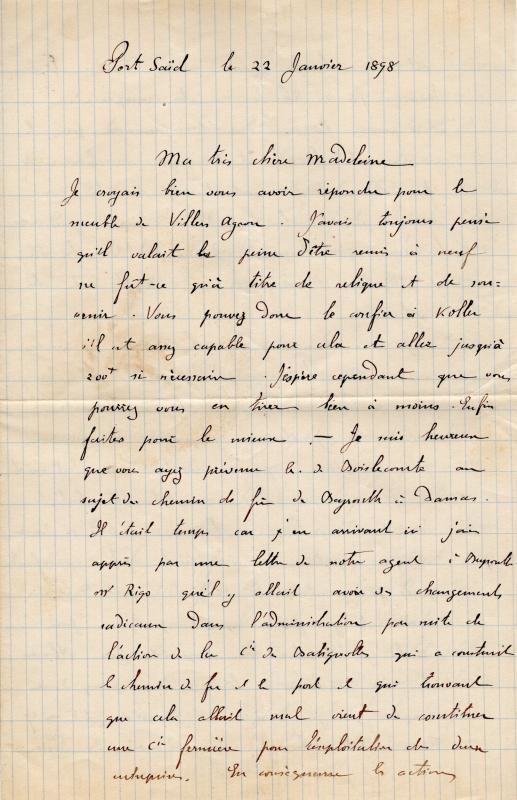 Port Saïd le 22 Janvier 1898
Ma très chère Madeleine
Je croyais bien vous avoir répondu pour le
meuble de Villers Agron. J'avais toujours pensé
qu'il valait la peine d'être remis à neuf
ne fût-ce qu'à titre de relique et de sou-
venir. Vous pouvez donc le confier à Koller
s'il est assez capable pour cela et allez jusqu'à
200f si nécessaire. J'espère cependant que vous
pourrez vous en tirer bien à moins. Enfin
faites pour le mieux. — Je suis heureux
que vous ayez prévenu de Boislecomte au
sujet du chemin de fer de Bayrouth à Damas.
Il était temps car j'en arrivant ici j'ai
appris par une lettre de notre agent à Bayrouth
Mr Rigo qu'il y allait avoir des changements
radicaux dans l'administration par suite de
l'action de la Cie de Batignolles qui a construit
le chemin de fer et le port et qui trouvant
que cela allait mal vient de constituer
une Cie fermière pour l'exploitation des deux
entreprises. En conséquence les actions